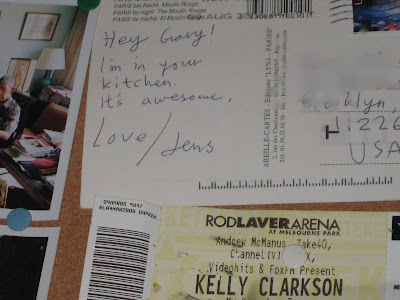 PARIS bei Nacht. Moulin Rouge
PARIS by night. The Moulin Rouge
PARIS de noche. El Moulin Rouge
AUG
Hey Gary!
I'm in your
kitchen.
It's awesome.
Love/Jens
ABEILLE-CARTES - Editions "LYNA-PARIS"
Brooklyn,
11226
USA
ROD LAVER ARENA
AT MELBOURNE PARK
Andrew McManus, Take40,
Channel[V]
Videohits & FoxFM Present
KELLY CLARKSON